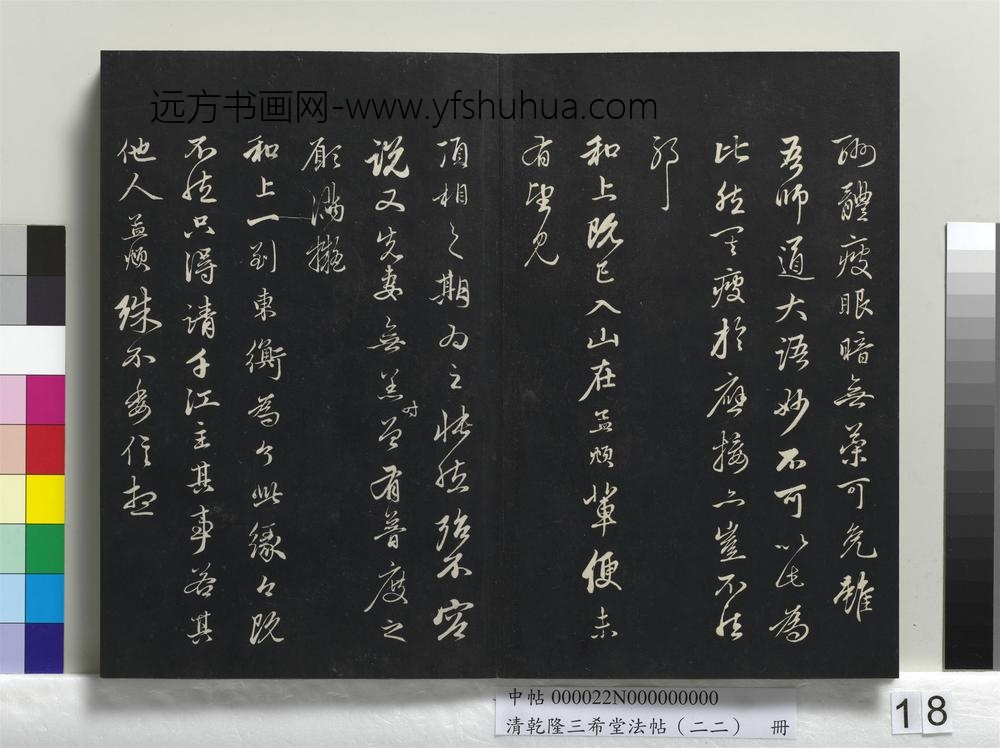 远方书画网-www.yfshuhua.com
酬體瘦眼暗無藥可免雖
吾師道大語妙不可以此為
比然其瘦於應接亦豈不然
耶
和上既已入山在孟頫輩便未
有望見
頂相之期為之悵然殆不容
說又先妻無恙時曾有普度之
願滿擬
和上一到東衡為了此緣今既
不然只得請千江主其事若其
他人孟頫殊不委信想
中帖 000022N000000000
清乾隆三希堂法帖（二二） 冊
18